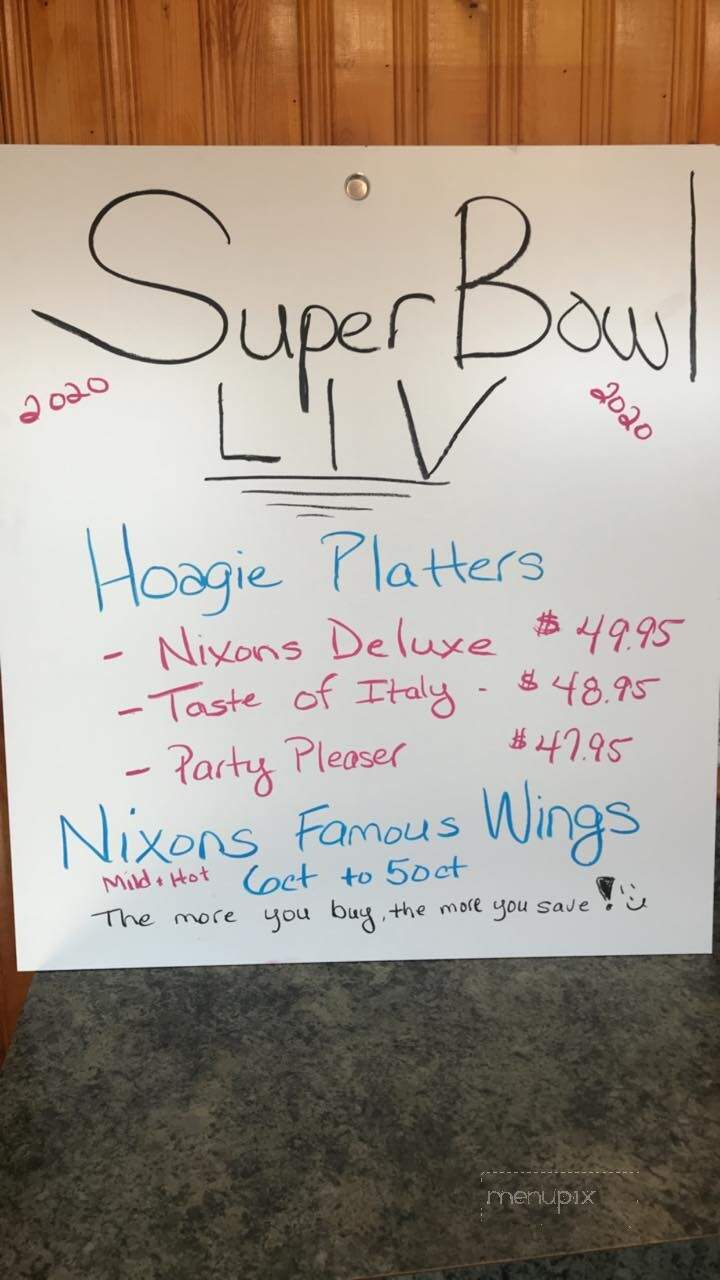 Super Bowl
2020 LIV 2020
Hoagie Platters
- Nixons Deluxe $49.95
- Taste of Italy - $48.95
- Party Pleaser $47.95
Nixons Famous Wings
Mild + Hot 6ct to 50ct
The more you buy, the more you save! :)
menupix